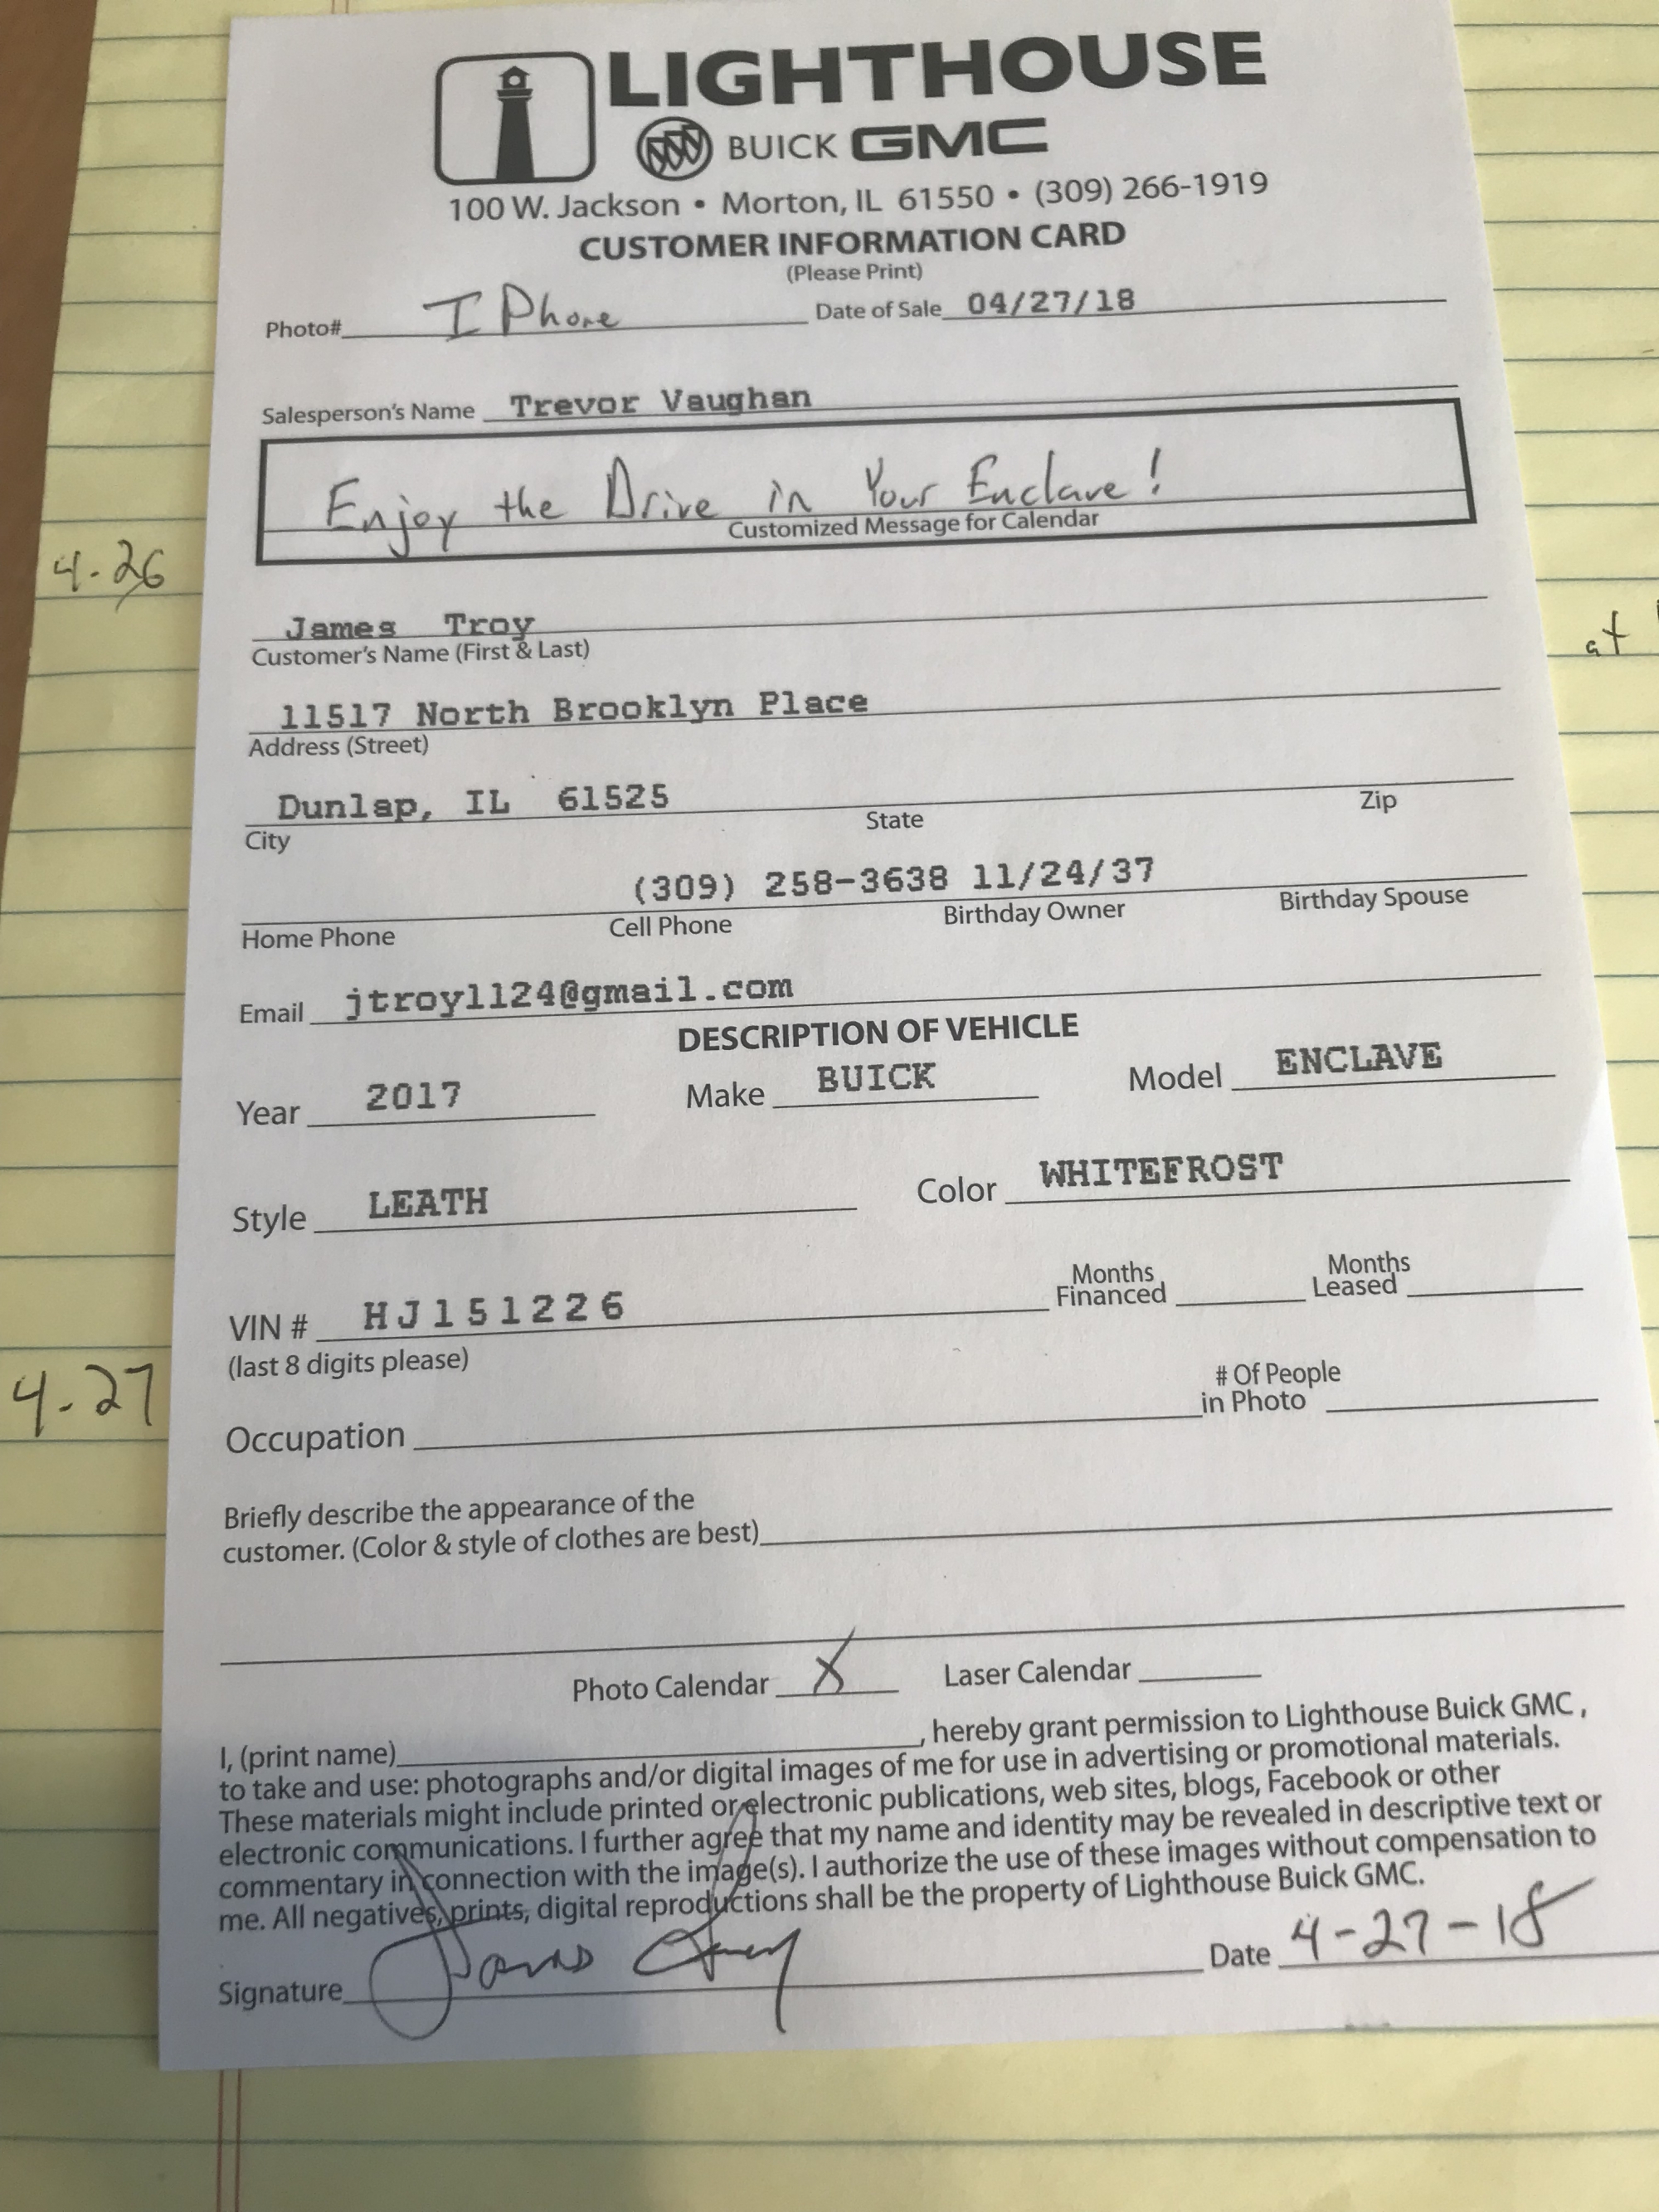 LIGHTHOUSE
BUICK GMC
100 W. Jackson • Morton, IL 61550 • (309) 266-1919
CUSTOMER INFORMATION CARD
(Please Print)
Photo# I Phone Date of Sale 04/27/18
Salesperson's Name Trevor Vaughan
Enjoy the Drive in Your Enclave!
Customized Message for Calendar
4-26
at
James Troy
Customer's Name (First & Last)
11517 North Brooklyn Place
Address (Street)
Dunlap, IL 61525
City State Zip
(309) 258-3638 11/24/37
Home Phone Cell Phone Birthday Owner Birthday Spouse
Email jtroy1124@gmail.com
DESCRIPTION OF VEHICLE
Year 2017 Make BUICK Model ENCLAVE
Style LEATH Color WHITEFROST
VIN # HJ151226 Months Financed Months Leased
(last 8 digits please)
4-27
Occupation # Of People in Photo
Briefly describe the appearance of the
customer. (Color & style of clothes are best)
Photo Calendar X Laser Calendar
I, (print name) , hereby grant permission to Lighthouse Buick GMC ,
to take and use: photographs and/or digital images of me for use in advertising or promotional materials.
These materials might include printed or electronic publications, web sites, blogs, Facebook or other
electronic communications. I further agree that my name and identity may be revealed in descriptive text or
commentary in connection with the image(s). I authorize the use of these images without compensation to
me. All negatives, prints, digital reproductions shall be the property of Lighthouse Buick GMC.
Signature James Troy Date 4-27-18